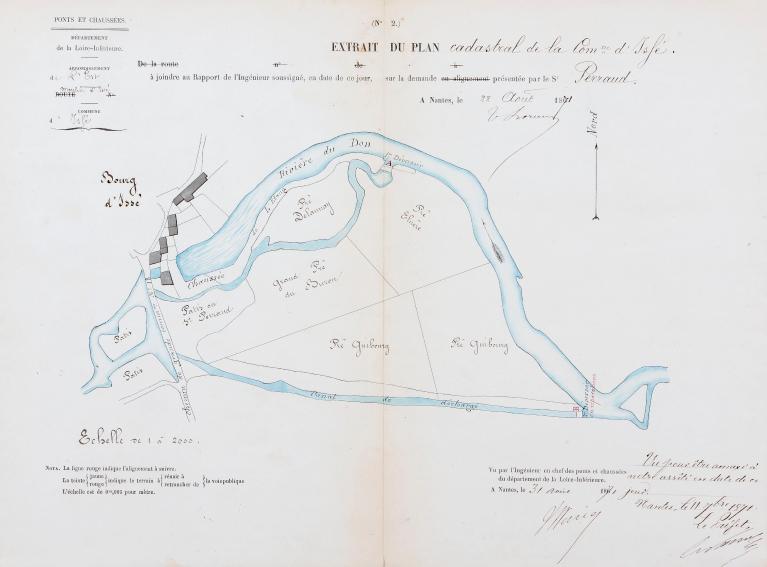 PONTS ET CHAUSSÉES.
DÉPARTEMENT
de la Loire-Inférieure.
ARRONDISSEMENT
ROUTE N°
COMMUNE
d' Issé
(N° 2.)
EXTRAIT DU PLAN cadastral de la Comne d'Issé.
De la route n° de à
à joindre au Rapport de l'Ingénieur soussigné, en date de ce jour, sur la demande en alignement présentée par le Sr Perraud.
A Nantes, le 22 Août 1871
Nord
Bourg
d'Issé
Rivière du Don
Le Déversoir
A
de l'Etang
Pré
Delaunay
Pré
Chaussée
Grand Pré
du Buron
Patis au
Sr Perraud
Pré Guibourg
Pré Guibourg
Patis
Patis
Canal de décharge
Echelle de 1 à 2000.
NOTA. La ligne rouge indique l'alignement à suivre.
La teinte { jaune rouge } indique le terrain à { réunir à retrancher de } la voie publique
L'échelle est de 0m,005 pour mètre.
Vu par l'Ingénieur en chef des ponts et chaussées
du département de la Loire-Inférieure.
A Nantes, le 31 août 1871
Vu pour être annexé à
notre arrêté en date de ce
jour.
Nantes, le 11 7bre 1871.
le Préfet,